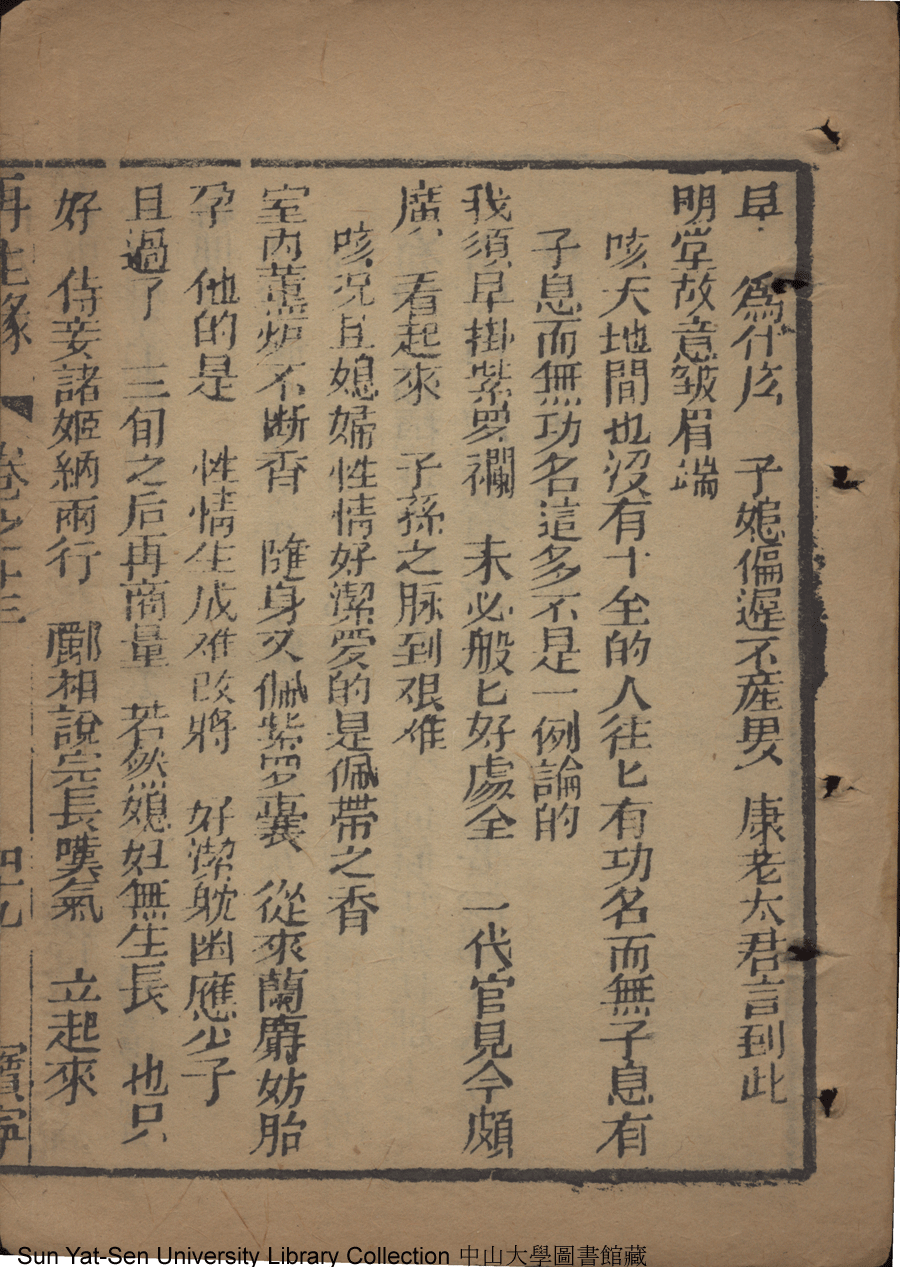 早　為什広　子媳偏遲不產男　康老太君言到此
明堂故意皱眉端
咳天地間也沒有十全的人往匕有功名而無子息有
子息而無功名這多不是一例論的
我須早掛紫罗襴　未必般匕好處全　一代官見今頗
廣　看起來　子孫之脉到艰难
咳况且媳婦性情好潔愛的是佩帶之香
室內薰炉不断香　隨身又佩紫罗囊　從來蘭麝妨胎
孕　他的是　性情生成难改將　好潔躭幽應少子
且過了　三旬之后再商量　若然媳妇無生長　也只
好　侍妾諸姬納兩行　酈相說完長嘆氣　立起來
再生緣　卷之十三　四九　寶寧
Sun Yat-Sen University Library Collection 中山大學圖書館藏